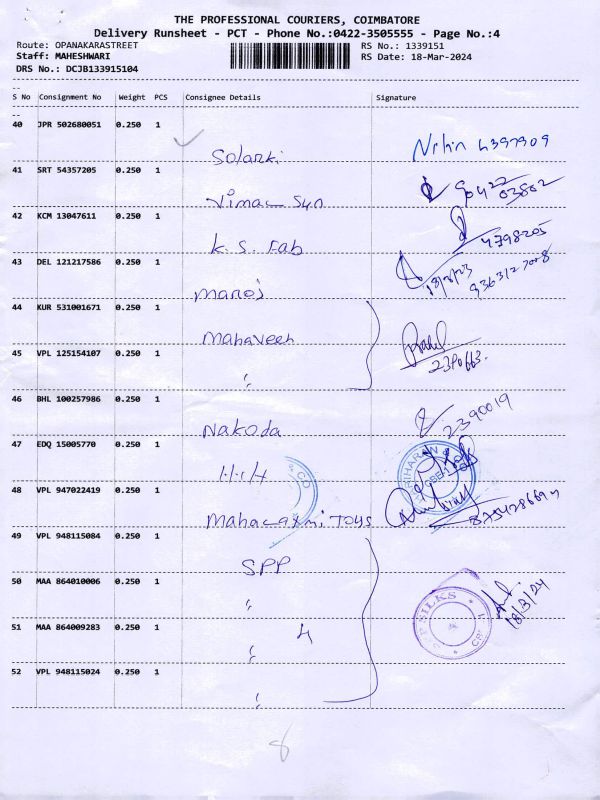 THE PROFESSIONAL COURIERS, COIMBATORE
Delivery Runsheet - PCT - Phone No.:0422-3505555 - Page No.:4
Route: OPANAKARASTREET RS No.: 1339151
Staff: MAHESHWARI RS Date: 18-Mar-2024
DRS No.: DCJB133915104
S No Consignment No Weight PCS Consignee Details Signature
40 JPR 502680051 0.250 1
Solanki Nitin 4397909
41 SRT 54357205 0.250 1
Vimal Sun
42 KCM 13047611 0.250 1
K.S. Fab 4798205
43 DEL 121217586 0.250 1
Manoj
44 KUR 531001671 0.250 1
Mahaveeh
45 VPL 125154107 0.250 1
2390663.
46 BHL 100257986 0.250 1
Nakoda 2390019
47 EDQ 15005770 0.250 1
H.H
48 VPL 947022419 0.250 1
Mahalaxmi Toys
49 VPL 948115084 0.250 1
SPP
50 MAA 864010006 0.250 1
18/3/24
51 MAA 864009283 0.250 1
4
SPP SILKS
52 VPL 948115024 0.250 1
8